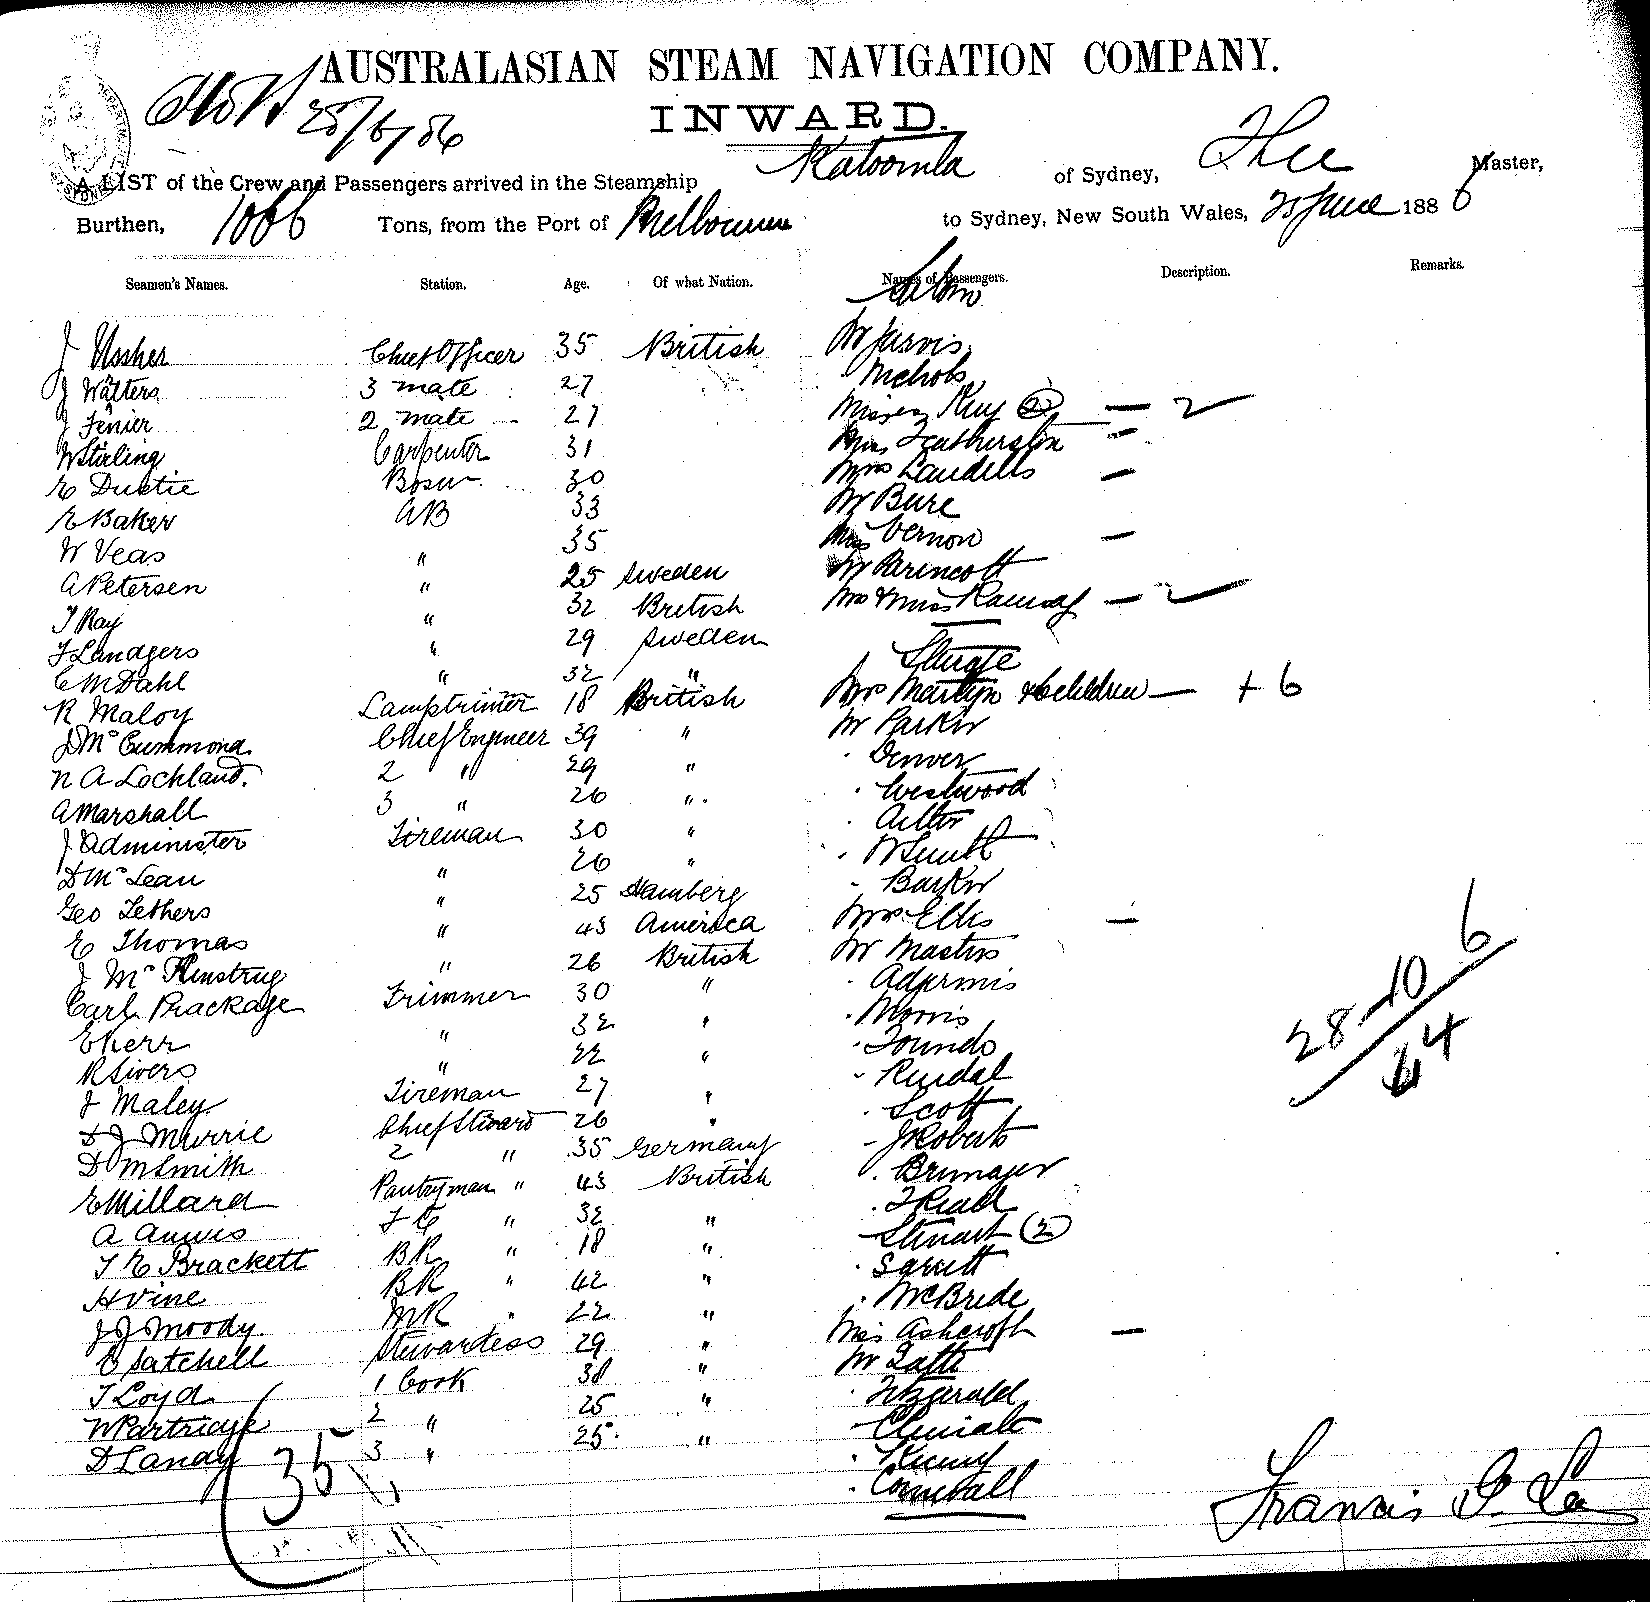 AUSTRALASIAN STEAM NAVIGATION COMPANY.
25/6/86
INWARD.
A LIST of the Crew and Passengers arrived in the Steamship Katoomba of Sydney, Lee Master,
Burthen, 1066 Tons, from the Port of Melbourne to Sydney, New South Wales, 25 June 1886
Seamen's Names. Station. Age. Of what Nation. Names of Passengers. Description. Remarks.
Saloon
J Ussher Chief Officer 35 British Mr Jarvis
J Watters 3 mate 27 Nichols
J Fenier 2 mate 27 Misses Kay (2) — 2
W Stirling Carpenter 31 Miss Featherston —
E Duttie Bosun 30 Mrs Landells —
E Baker AB 33 Mr Bure
W Veas " 35 Miss Vernon —
A Petersen " 25 Sweden Mr
T Ray " 32 British Mrs & Miss Ramsay — 2
J Landgers " 29 Sweden
Steerage
C M Dahl " 32 "
R Maloy Lamptrimer 18 British Mrs Martyn & 6 children — + 6
J McCummond Chief Engineer 39 " Mr Parker
N A Lochland. 2 " 29 " Denver
A Marshall 3 " 26 " Westwood
J Administer Fireman 30 "
D McLean " 26 " W Smith
Geo Tethers " 25 Hamberg Barker
E Thomas " 43 America Mrs Ellis —
J Mc " 26 British Mr Masters
Carl Prackage Trimmer 30 "
E Kerr " 32 " Morris
R Sivers " 22 " Founds
J Maley Fireman 27 " Rendal
D J Murrie Chief Steward 26 " Scott
D M Smith 2 " 35 Germany J Roberts
E Millard Pantryman " 43 British
A Annis F C " 32 " T Read
T E Brackett BR " 18 " Stewart (2)
H Vine BR " 42 " Garrett
J J Moody MR " 22 " McBride
E Satchell Stewardess 29 " Miss Ashcroft —
T Loyd 1 Cook 38 " Mr
W Partridge 2 " 25 " Fitzgerald
D Landy 3 " 25 "
Kenny
Cornwall
35
28 10 6
4
Francis P. Lee